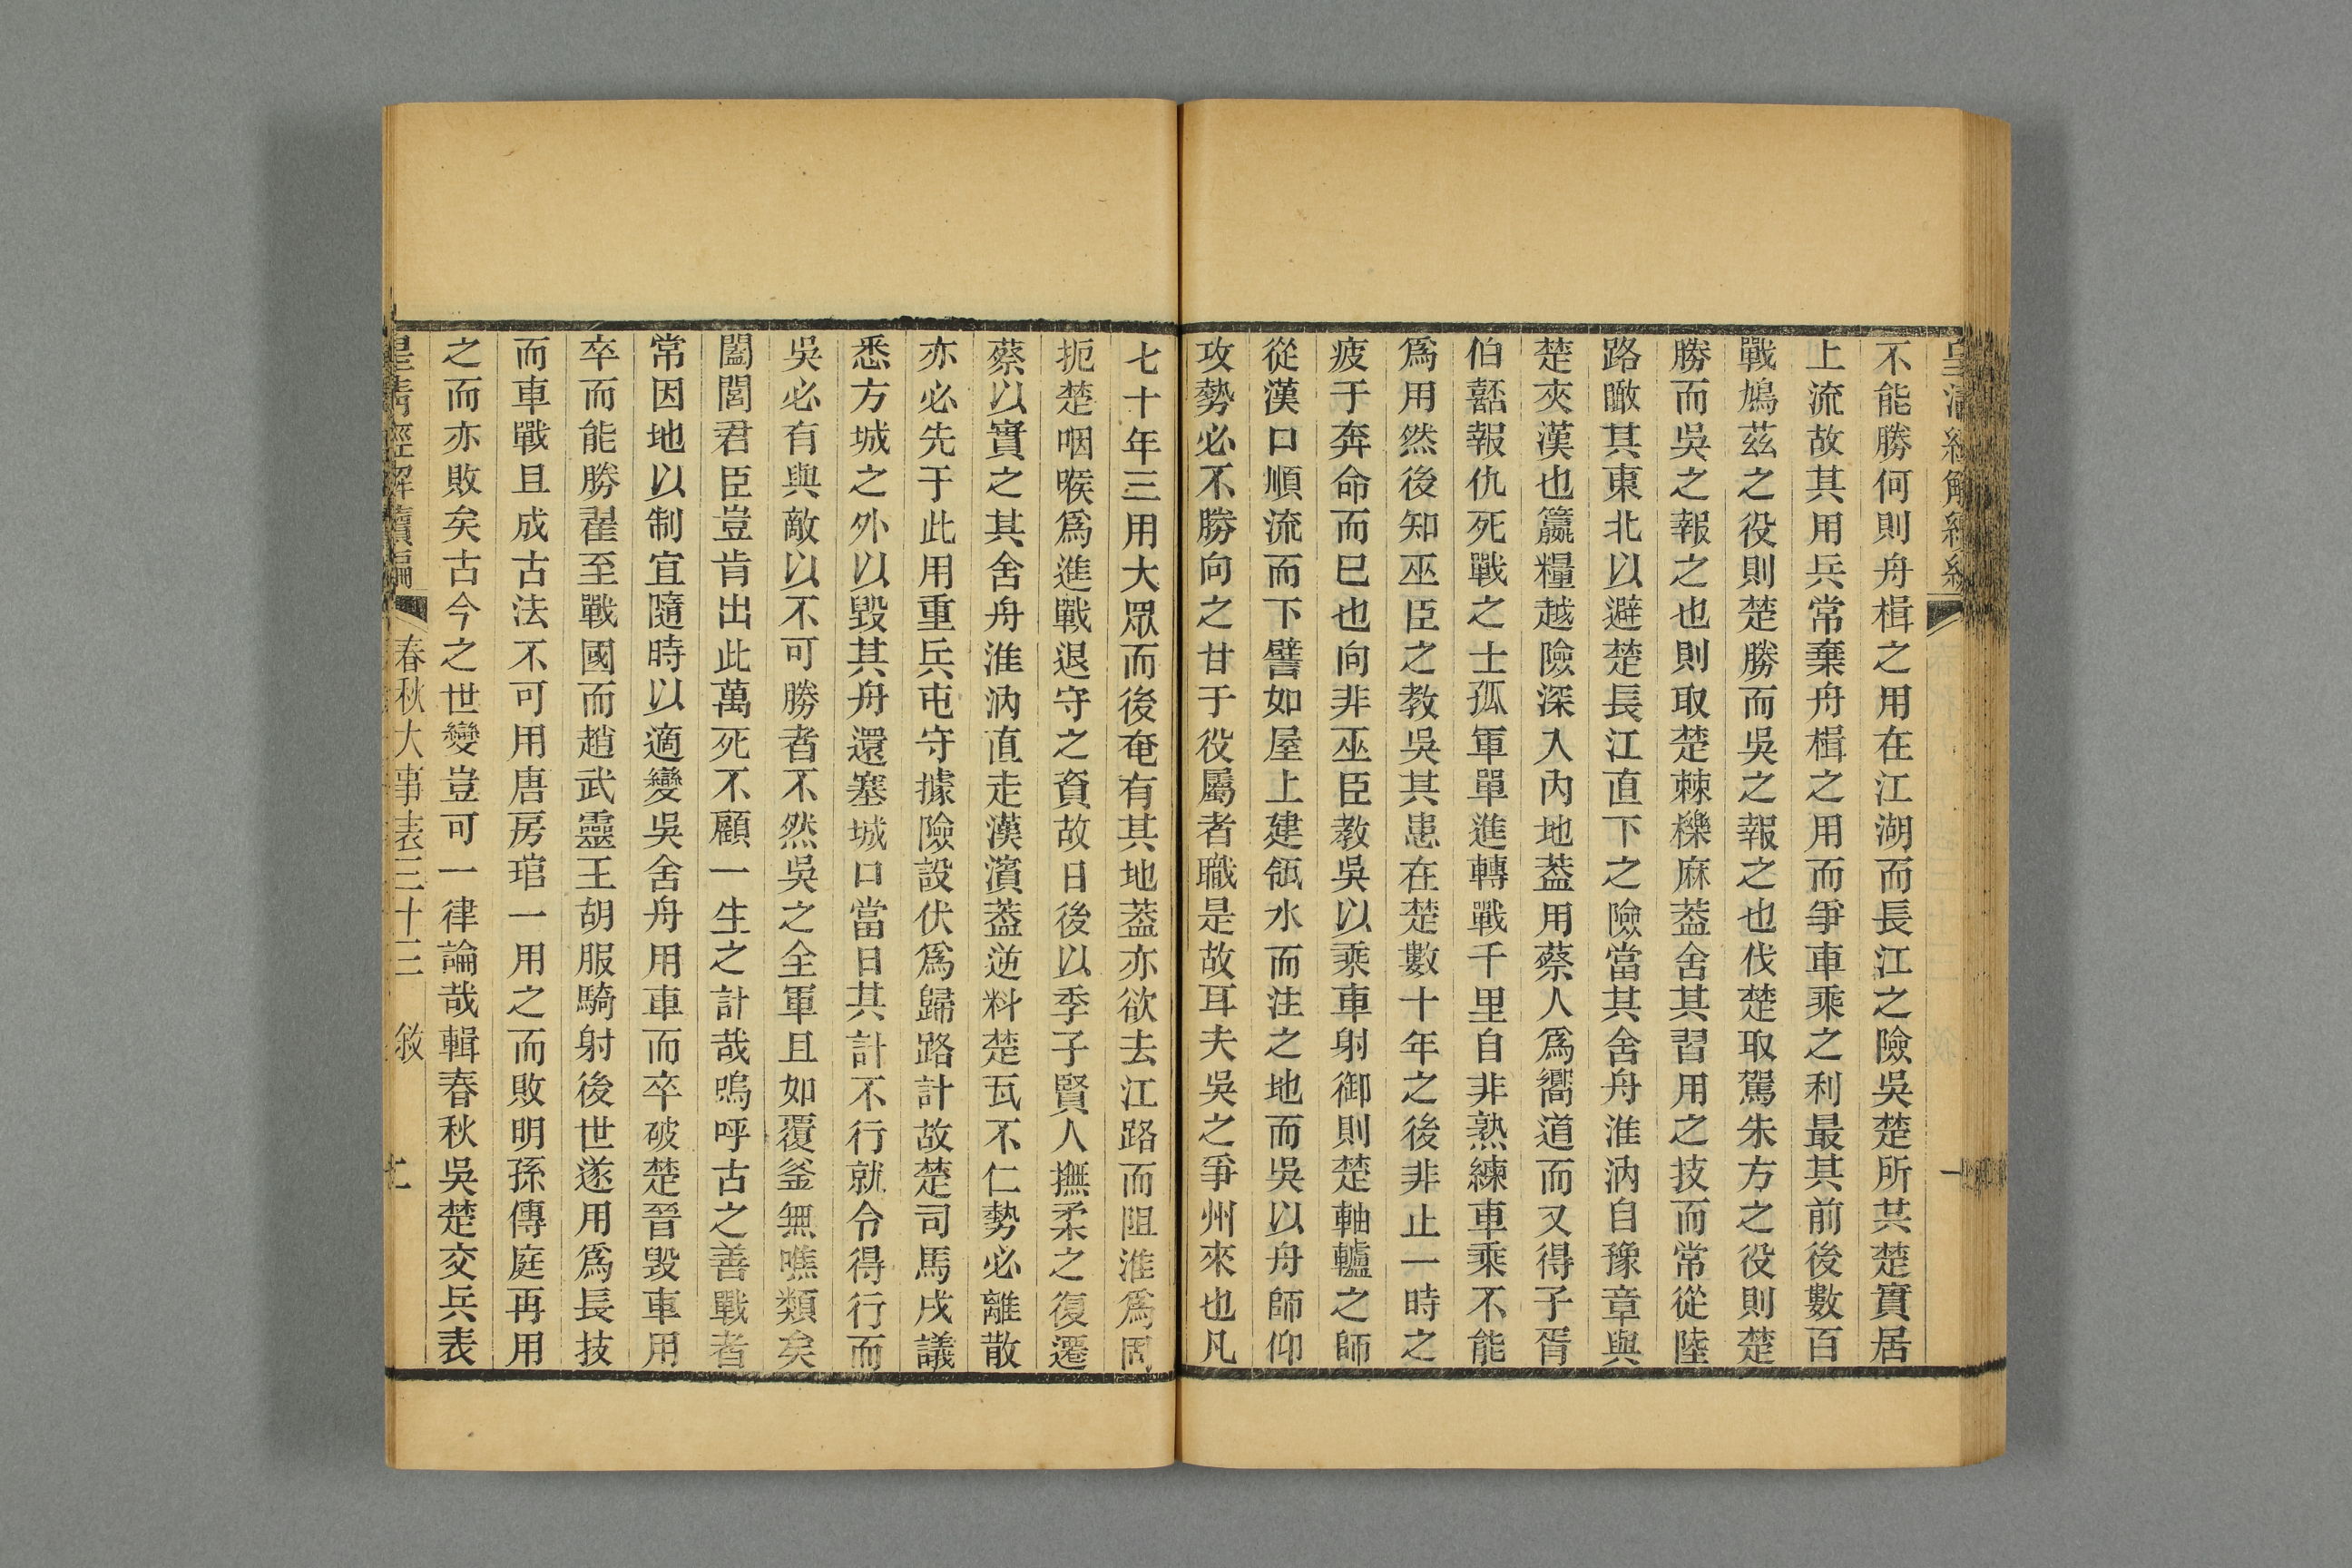 不能勝何則舟楫之用在江湖而長江之險吳楚所共楚實居
上流故其用兵常棄舟楫之用而爭車乘之利最其前後數百
戰鳩茲之役則楚勝而吳之報之也伐楚取駕朱方之役則楚
勝而吳之報之也則取楚棘櫟麻葢舍其習用之技而常從陸
路瞰其東北以避楚長江直下之險當其舍舟淮汭自豫章與
楚夾漢也籯糧越險深入內地葢用蔡人為嚮道而又得子胥
伯嚭報仇死戰之士孤軍單進轉戰千里自非熟練車乘不能
為用然後知巫臣之教吳其患在楚數十年之後非止一時之
疲于奔命而巳也向非巫臣教吳以乘車射御則楚軸轤之師
從漢口順流而下譬如屋上建瓴水而注之地而吳以舟師仰
攻勢必不勝向之甘于役屬者職是故耳夫吳之爭州來也凡
七十年三用大眾而後奄有其地葢亦欲去江路而阻淮為固
扼楚咽喉為進戰退守之資故日後以季子賢人撫柔之復遷
蔡以實之其舍舟淮汭直走漢濱葢逆料楚瓦不仁勢必離散
亦必先于此用重兵屯守據險設伏為歸路計故楚司馬戌議
悉方城之外以毀其舟還塞城口當日其計不行就令得行而
吳必有與敵以不可勝者不然吳之全軍且如覆釜無噍類矣
闔閭君臣豈肯出此萬死不顧一生之計哉嗚呼古之善戰者
常因地以制宜隨時以適變吳舍舟用車而卒破楚晉毀車用
卒而能勝翟至戰國而趙武靈王胡服騎射後世遂用為長技
而車戰且成古法不可用唐房琯一用之而敗明孫傳庭再用
之而亦敗矣古今之世變豈可一律論哉輯春秋吳楚交兵表
皇清經解續編 春秋大事表三十三 敘 二